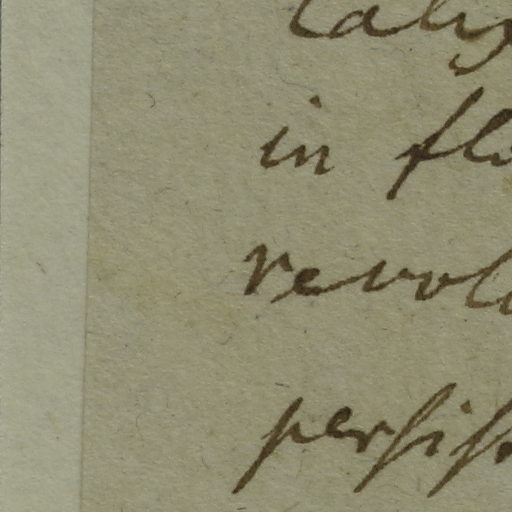 Caly
in flo
revolu
persis